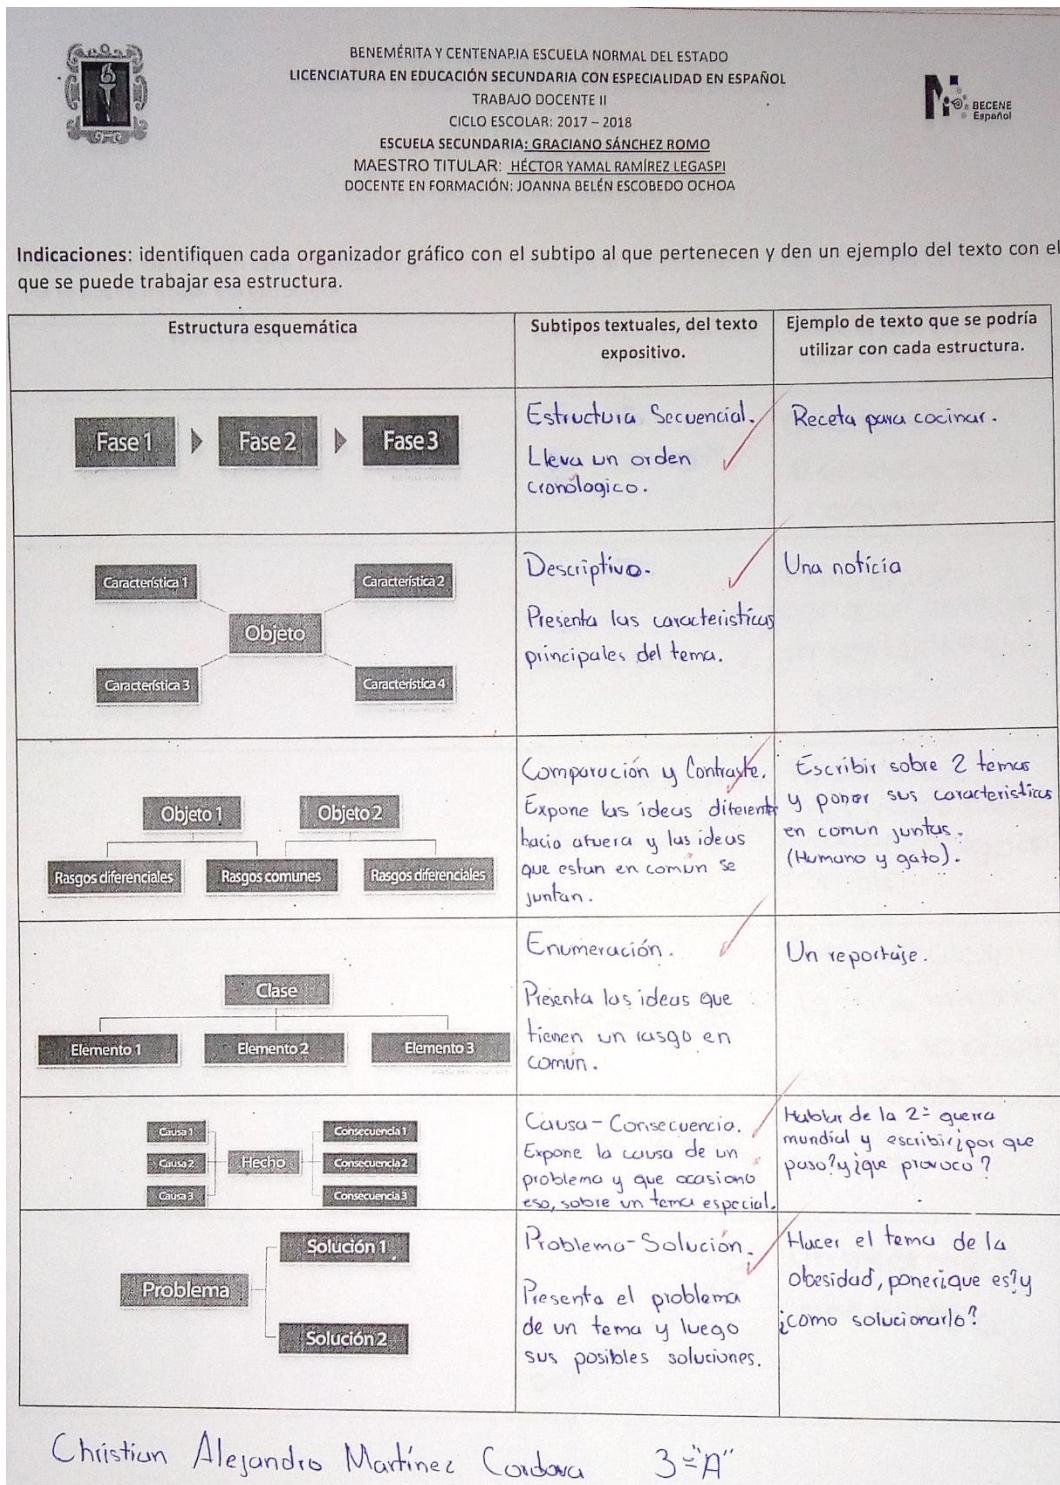 BENEMÉRITA Y CENTENARIA ESCUELA NORMAL DEL ESTADO
LICENCIATURA EN EDUCACIÓN SECUNDARIA CON ESPECIALIDAD EN ESPAÑOL
TRABAJO DOCENTE II
CICLO ESCOLAR: 2017 – 2018
ESCUELA SECUNDARIA: GRACIANO SÁNCHEZ ROMO
MAESTRO TITULAR: HÉCTOR YAMAL RAMÍREZ LEGASPI
DOCENTE EN FORMACIÓN: JOANNA BELÉN ESCOBEDO OCHOA
BECENE
Español
Indicaciones: identifiquen cada organizador gráfico con el subtipo al que pertenecen y den un ejemplo del texto con el
que se puede trabajar esa estructura.
Estructura esquemática
Subtipos textuales, del texto
expositivo.
Ejemplo de texto que se podría
utilizar con cada estructura.
Fase 1
Fase 2
Fase 3
Estructura Secuencial.
Lleva un orden
cronologico.
Receta para cocinar.
Característica 1
Característica 2
Objeto
Característica 3
Característica 4
Descriptivo.
Presenta las caracteristicas
principales del tema.
Una noticia
Objeto 1
Objeto 2
Rasgos diferenciales
Rasgos comunes
Rasgos diferenciales
Comparación y Contraste.
Expone las ideas diferente
hacia afuera y las ideas
que estan en común se
juntan.
Escribir sobre 2 temas
y poner sus caracteristicas
en comun juntas.
(Humano y gato).
Clase
Elemento 1
Elemento 2
Elemento 3
Enumeración.
Presenta las ideas que
tienen un rasgo en
común.
Un reportaje.
Causa 1
Causa 2
Causa 3
Hecho
Consecuencia 1
Consecuencia 2
Consecuencia 3
Causa-Consecuencia.
Expone la causa de un
problema y que ocasiono
eso, sobre un tema especial.
Hablar de la 2ª guerra
mundial y escribir ¿por que
paso? y ¿que provoco?
Problema
Solución 1
Solución 2
Problema-Solución.
Presenta el problema
de un tema y luego
sus posibles soluciones.
Hacer el tema de la
obesidad, poner ¿que es? y
¿como solucionarlo?
Christian Alejandro Martínez Cordova 3º "A"